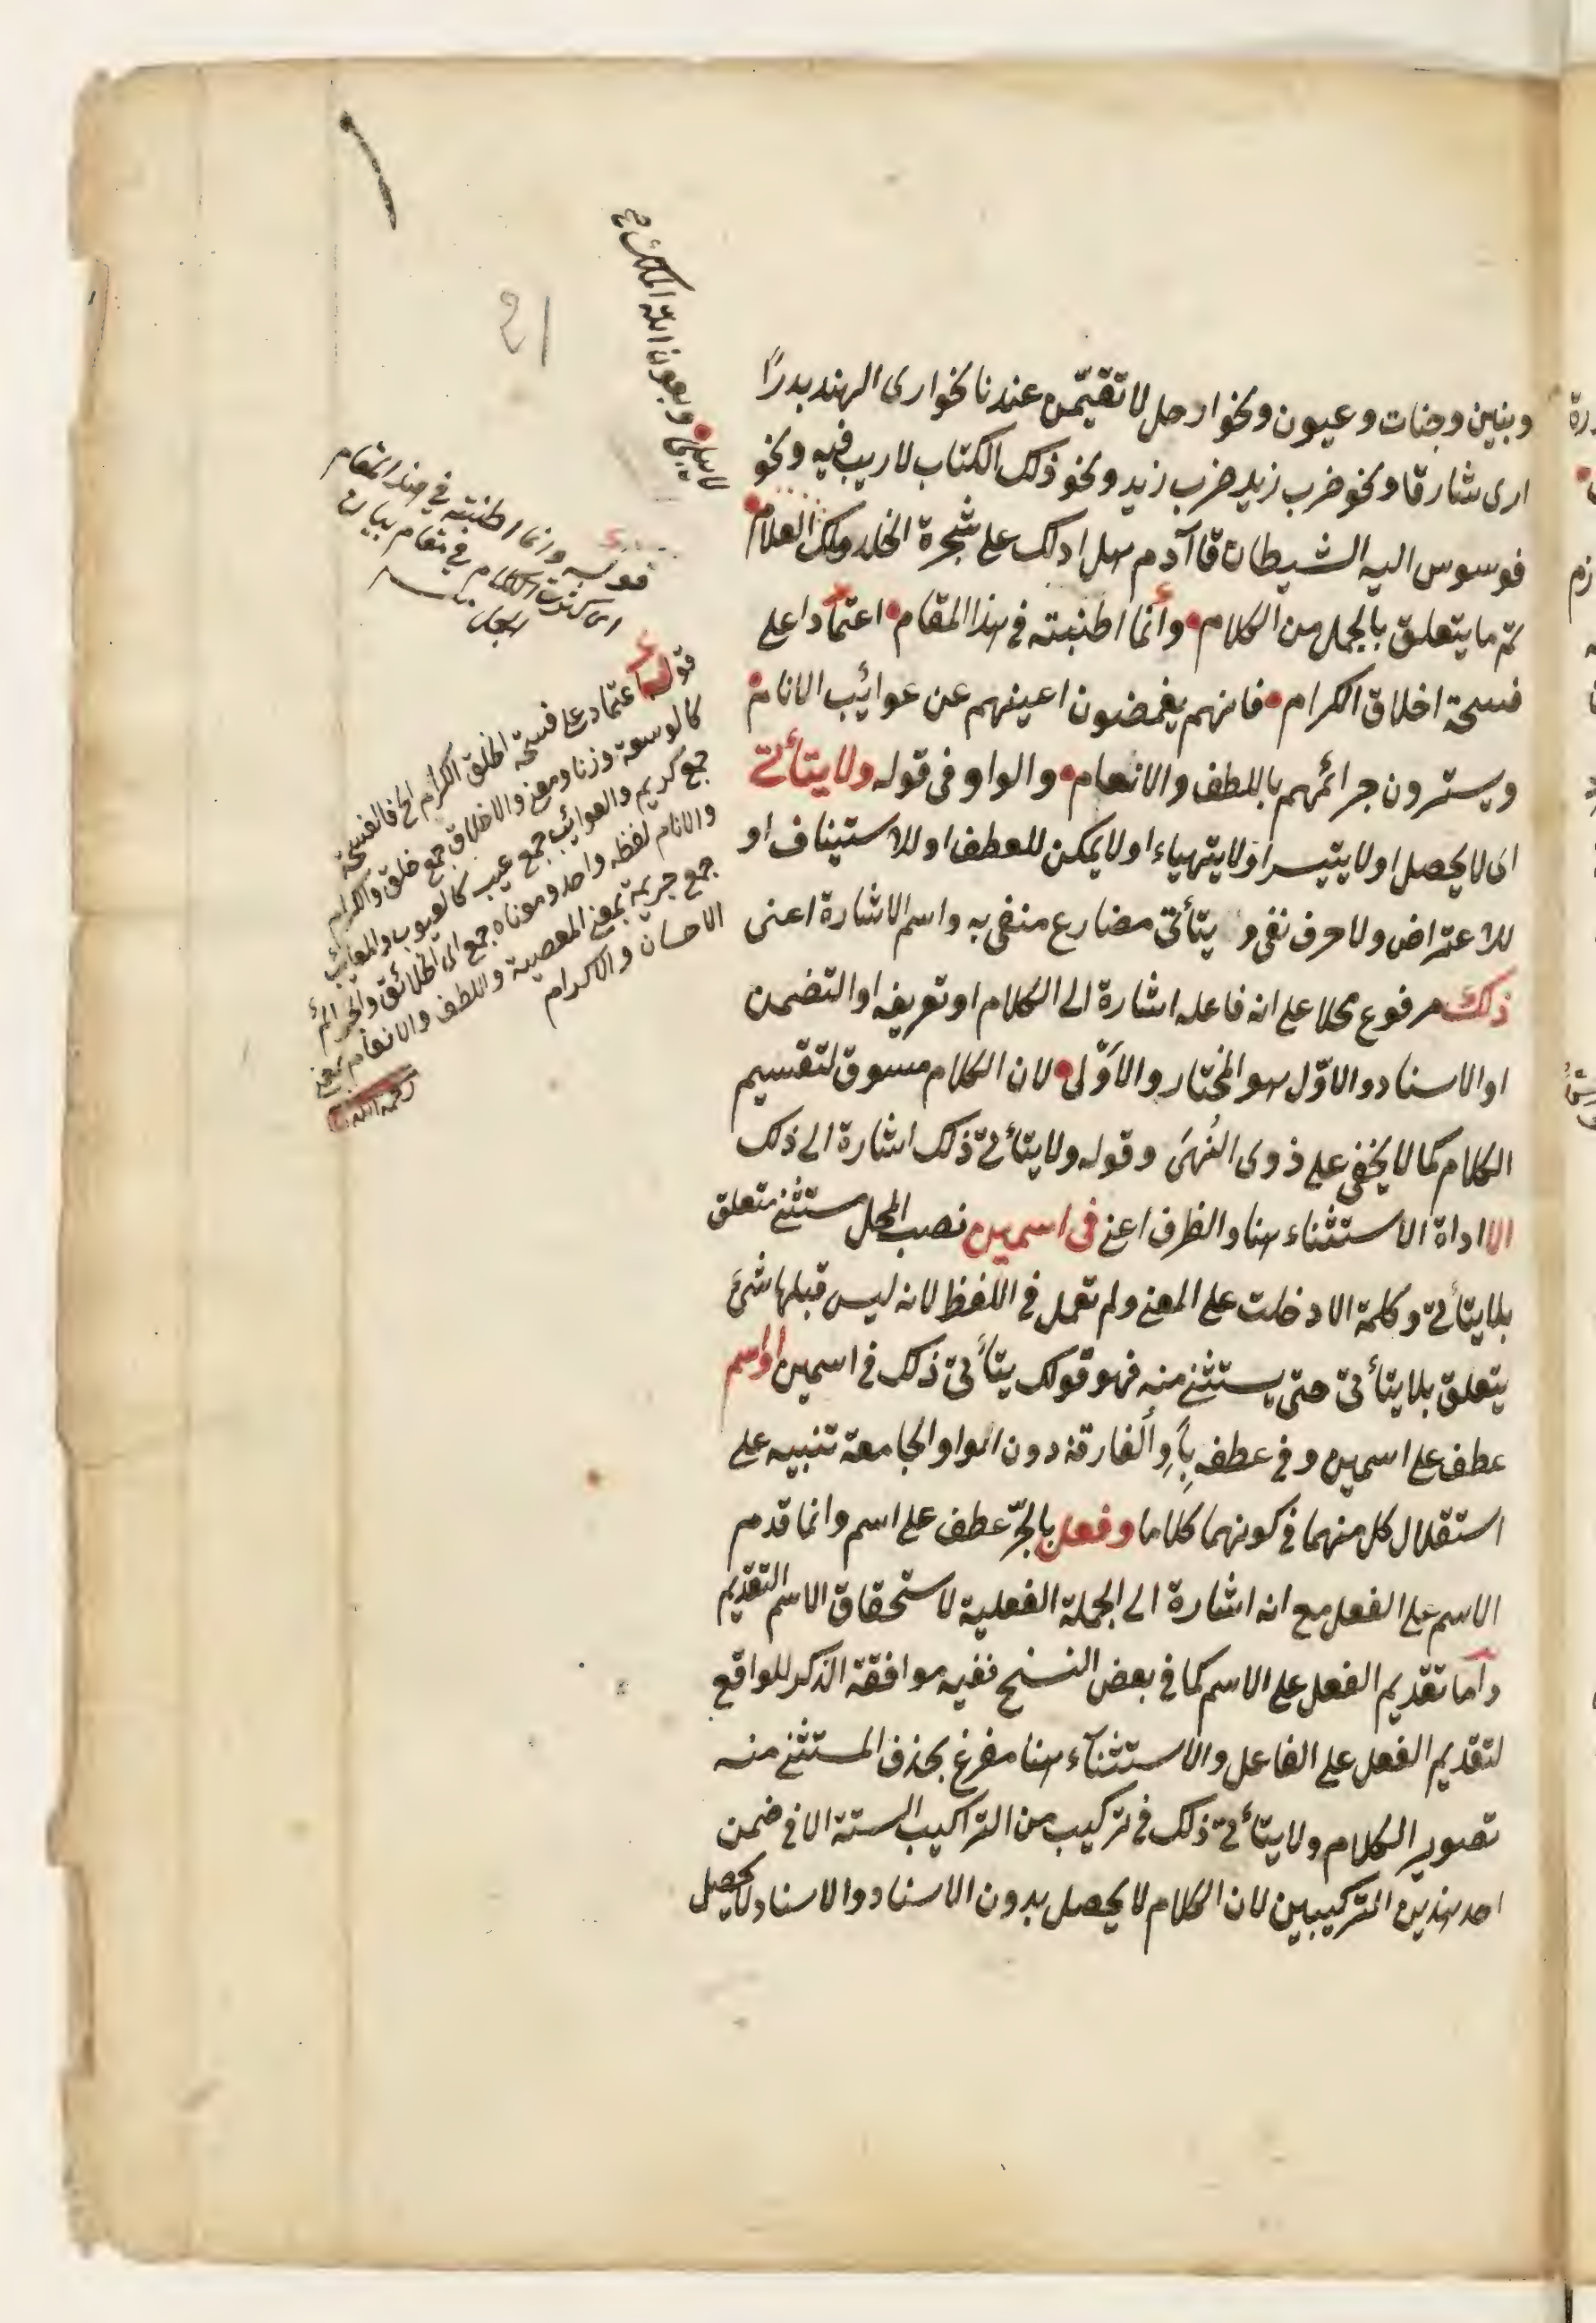 وبنين وجنات وعيون ونحو ارحل لا تقيمن عندنا نحو ارى الهند بدرًا
ارى شارقا ونحو ضرب زيد ضرب زيد ونحو ذلك الكتاب لا ريب فيه ونحو
فوسوس اليه الشيطان قا آدم هل ادلك على شجرة الخلد وملك العلام
تم ما يتعلق بالجمل من الكلام وانما اطنبته فى هذا المقام اعتمادا على
فسحة اخلاق الكرام فانهم يغمضون اعينهم عن عوائب الانام
ويسترون جرائمهم باللطف والانعام والواو فى قوله ولا يتأتى
اى لا يحصل او لا يتيسر او لا يتهياء او لا يمكن للعطف او للاستيناف او
للاعتراض ولا حرف نفى و يتأتى مضارع منفى به واسم الاشارة اعنى
ذلك مرفوع محلا على انه فاعله اشارة الى الكلام او تعريفه او التضمن
او الاسناد والاوّل هو المختار والاَوّلى لان الكلام مسوق لتقسيم
الكلام كما لا يخفى على ذوى النُهىَ وقوله ولا يتأتى ذلك اشارة الى ذلك
الا اداة الاستثناء هنا والظرف اعنى فى اسمين نصب المحل مستثنى متعلق
بلا يتأتى وكلمة الا دخلت على المعنى ولم تعمل فى اللفظ لانه ليس قبلها شئ
يتعلق بلا يتأتى حتى يستثنى منه فهو قولك يتأتى ذلك فى اسمين او اسم
عطف على اسمين وفى عطفه بِأَوِ الفارقة دون الواو الجامعة تنبيه على
استقلال كل منهما فى كونهما كلاما وفعل بالجرّ عطف على اسم وانما قدم
الاسم على الفعل مع انه اشارة الى الجملة الفعلية لاستحقاق الاسم التقديم
واما تقديم الفعل على الاسم كما فى بعض النسخ ففيه موافقة الذكر للواقع
لتقديم الفعل على الفاعل والاستثنآء هنا مفرغ بحذف المستثنى منه
تصوير الكلام ولا يتأتى ذلك فى تركيب من التراكيب الستة الا فى ضمن
احد هذين التركيبين لان الكلام لا يحصل بدون الاسناد والاسناد لا يحصل
وبعون الله الملك
قوله وانما اطنبته فى هذا المقام
اى كثرت الكلام فى مقام بيان
الجمل
قوله اعتمادا على فسحة اخلاق الكرام الخ فالفسحة
كالوسعة وزنا ومعنى والاخلاق جمع خلق والكرام
جمع كريم والعوائب جمع عيب كالعيوب والمعايب
والانام لفظه واحد ومعناه جمع اى الخلائق والجرائم
جمع جريمة بمعنى المعصية واللطف والانعام بمعنى
الاحسان والاكرام
21